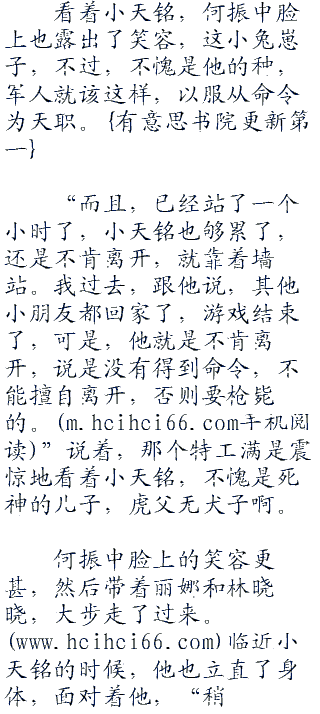 看着小天铭，何振中脸
上也露出了笑容，这小兔崽
子，不过，不愧是他的种，
军人就该这样，以服从命令
为天职。{有意思书院更新第
一}
“而且，已经站了一个
小时了，小天铭也够累了，
还是不肯离开，就靠着墙
站。我过去，跟他说，其他
小朋友都回家了，游戏结束
了，可是，他就是不肯离
开，说是没有得到命令，不
能擅自离开，否则要枪毙
的。(m.hcihci66.com手机阅
读)”说着，那个特工满是震
惊地看着小天铭，不愧是死
神的儿子，虎父无犬子啊。
何振中脸上的笑容更
甚，然后带着丽娜和林晓
晓，大步走了过来。
(www.hcihci66.com)临近小
天铭的时候，他也立直了身
体，面对着他，“稍